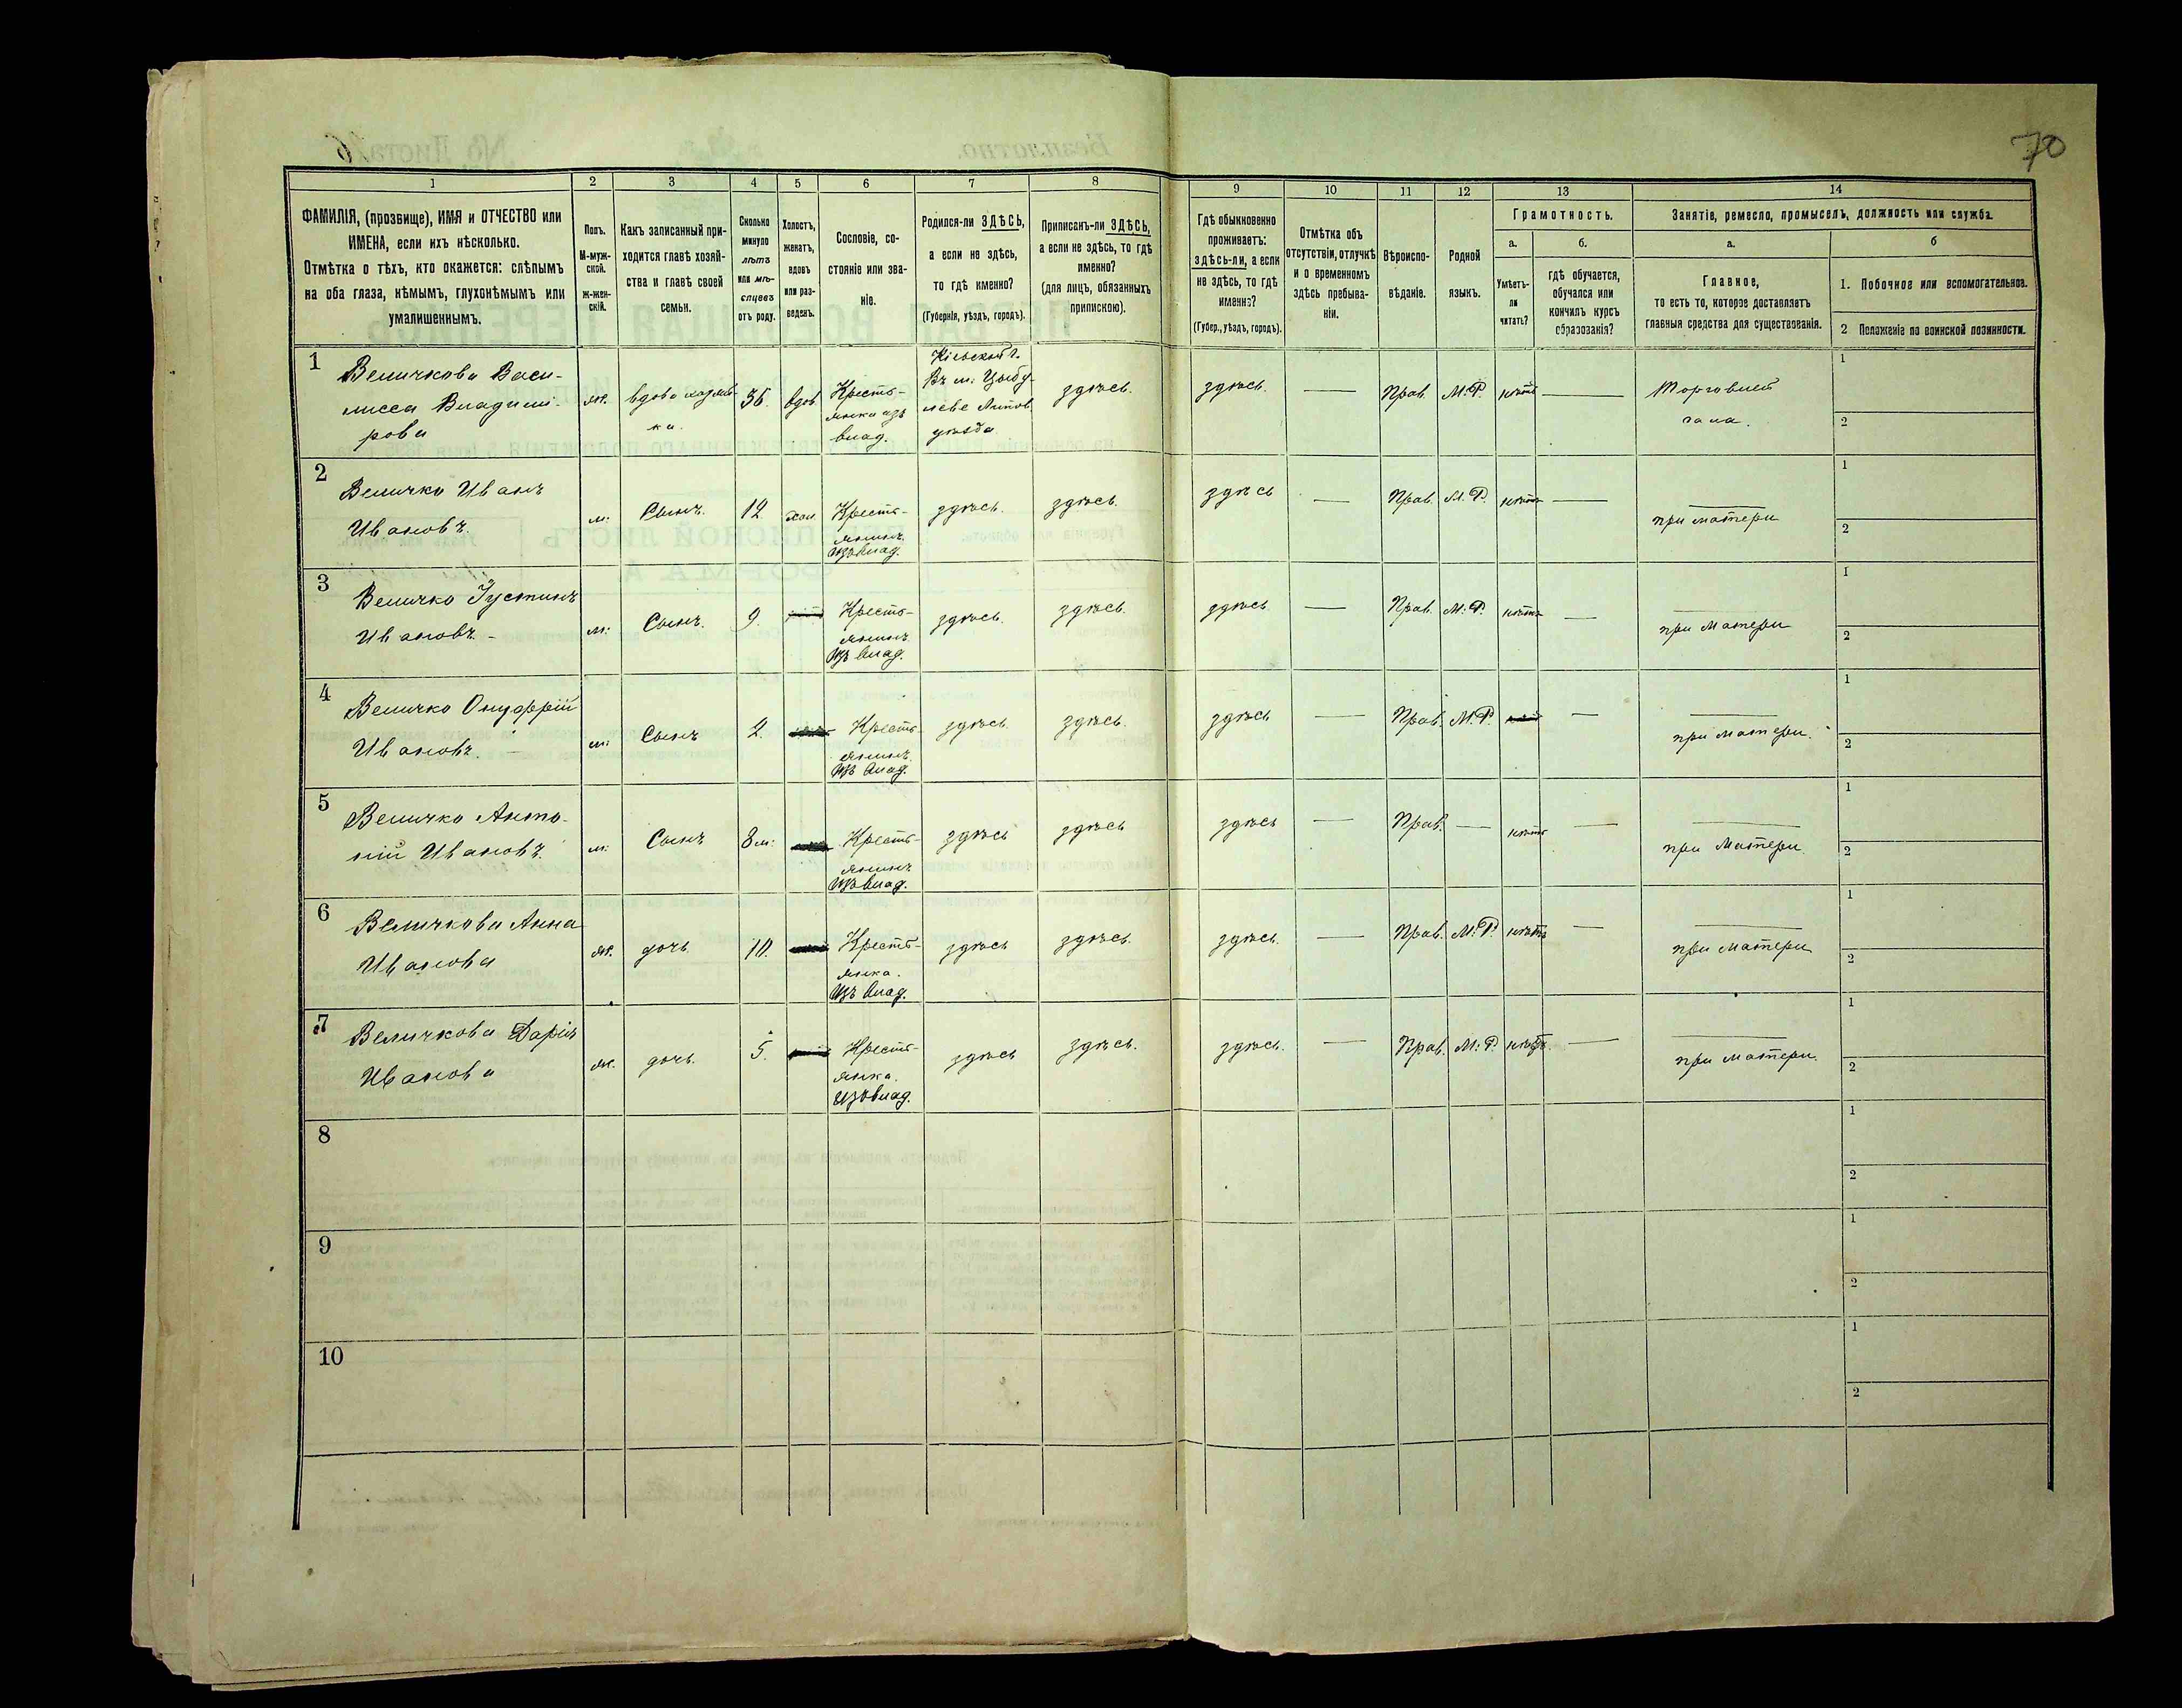 70
1 2 3 4 5 6 7 8 9 10 11 12 13 14
ФАМИЛІЯ, (прозвище), ИМЯ и ОТЧЕСТВО или
ИМЕНА, если ихъ нѣсколько.
Отмѣтка о тѣхъ, кто окажется: слѣпымъ
на оба глаза, нѣмымъ, глухонѣмымъ или
умалишеннымъ.
Полъ.
М-муж-
ской.
ж-жен-
скій.
Какъ записанный при-
ходится главѣ хозяй-
ства и главѣ своей
семьи.
Сколько
минуло
лѣтъ
или мѣ-
сяцевъ
отъ роду.
Холостъ,
женатъ,
вдовъ
или раз-
веденъ.
Сословіе, со-
стояніе или зва-
ніе.
Родился-ли ЗДѢСЬ,
а если не здѣсь,
то гдѣ именно?
(Губернія, уѣздъ, городъ).
Приписанъ-ли ЗДѢСЬ,
а если не здѣсь, то гдѣ
именно?
(для лицъ, обязанныхъ
припискою).
Гдѣ обыкновенно
проживаетъ:
здѣсь-ли, а если
не здѣсь, то гдѣ
именно?
(Губер., уѣздъ, городъ).
Отмѣтка объ
отсутствіи, отлучкѣ
и о временномъ
здѣсь пребыва-
ніи.
Вѣроиспо-
вѣданіе.
Родной
языкъ.
Грамотность.
а.
Умѣетъ-
ли
читать?
б.
гдѣ обучается,
обучался или
кончилъ курсъ
образованія?
Занятіе, ремесло, промыселъ, должность или служба.
а.
Главное,
то есть то, которое доставляетъ
главныя средства для существованія.
б
1. Побочное или вспомогательное.
2 Положеніе по воинской повинности.
1
Величкова Васи-
лисса Владимі-
рова
ж.
вдова хозяй-
ка.
36.
вдов.
Кресть-
янка изъ
влад.
Кіевской г.
Въ м. Цыбу-
леве Липов.
уѣзда
здѣсь.
здѣсь.
—
Прав.
М.Р.
нѣтъ
—
Торговлей
сала.
1
2
2
Величко Иванъ
Ивановъ.
м.
Сынъ.
12.
хол.
Кресть-
янинъ.
Изъ влад.
здѣсь.
здѣсь.
здѣсь
—
Прав.
М.Р.
нѣтъ
—
при матери
1
2
3
Величко Іустинъ
Ивановъ. -
м:
Сынъ.
9.
Кресть-
янинъ
Изъ влад.
здѣсь.
здѣсь.
здѣсь
—
Прав.
М:Р.
нѣтъ
—
при Матери
1
2
4
Величко Онуфрій
Ивановъ. —
м:
Сынъ
2.
Кресть-
янинъ.
Изъ влад.
здѣсь
здѣсь.
здѣсь
—
Прав.
М.Р.
—
при матери.
1
2
5
Величко Анто-
ній Ивановъ.
м:
Сынъ
8 м:
Кресть-
янинъ
Изъ влад.
здѣсь
здѣсь
здѣсь
—
Прав.
—
нѣтъ
—
при Матери.
1
2
6
Величкова Анна
Иванова
ж.
дочь.
10.
Кресть-
янка.
Изъ влад.
здѣсь
здѣсь.
здѣсь.
—
Прав.
М.Р.
нѣтъ
—
при матери
1
2
7
Величкова Дарія
Иванова
ж.
дочь.
5.
Кресть-
янка.
Изъ влад.
здѣсь
здѣсь.
здѣсь.
—
Прав.
М:Р.
нѣтъ.
—
при матери.
1
2
8
1
2
9
1
2
10
1
2